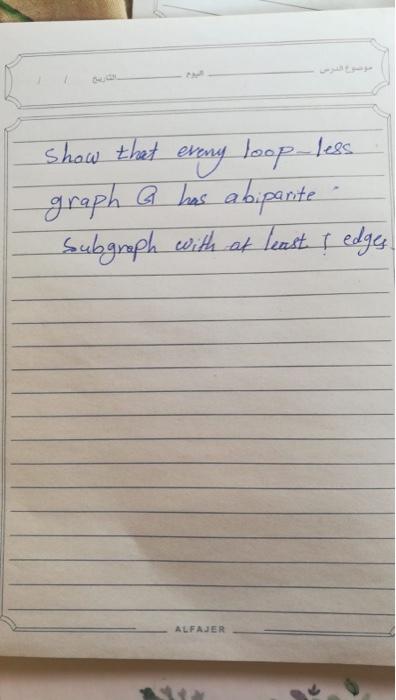 موضوع الدرس اليوم التاريخ / /
Show that every loop-less
graph G has abiparite
Subgraph with at least edges
ALFAJER